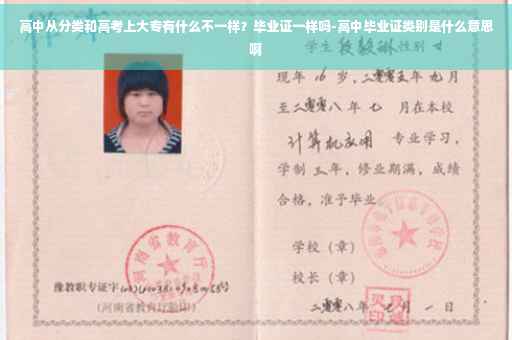 高中从分类和高考上大专有什么不一样？毕业证一样吗-高中毕业证类别是什么意思
啊
学生 性别 女
现年 16 岁，二零零五年 九月
至二零零八年 七 月在本校
计算机应用 专业学习，
学制 三 年，修业期满，成绩
合格，准予毕业
学校（章）
校长（章）
河南省教育厅
豫教职专证字
（河南省教育厅验印）
二零零八年 月 一 日